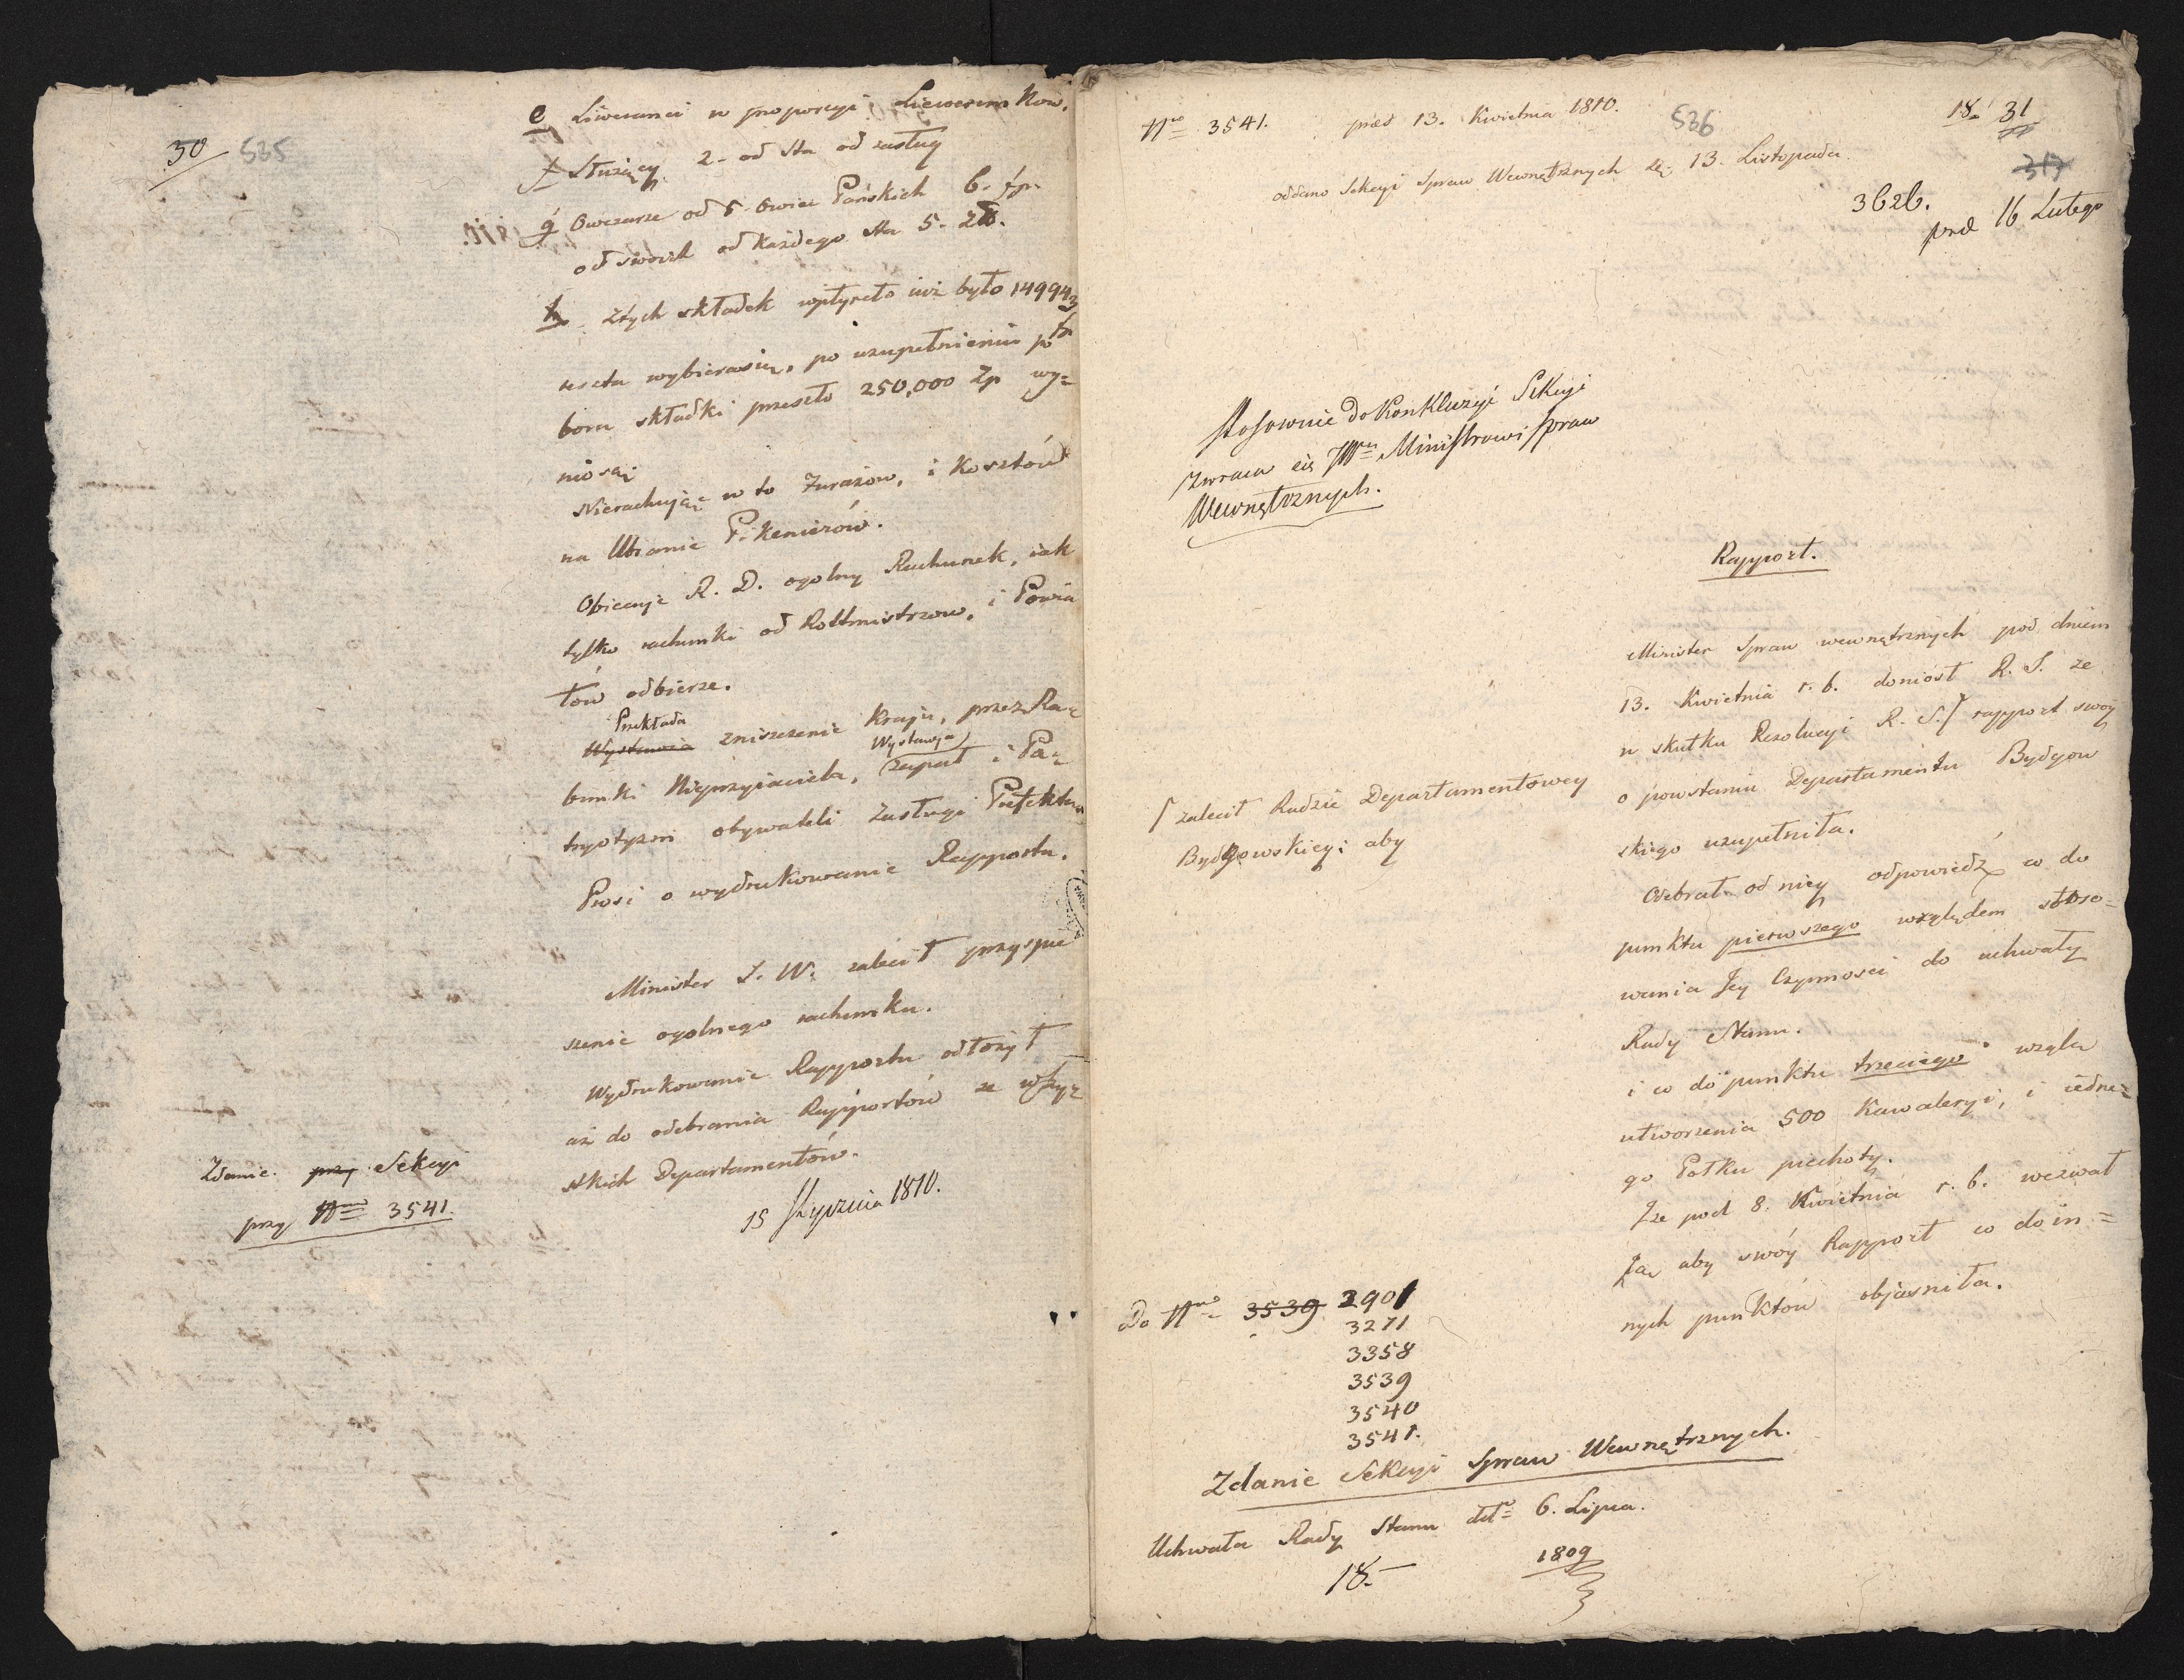 30 535
e Liwerunci w proporcyi Liewerun Kow.
f Służący 2 - od sta od zasług
g Owczarze od 5 Owiec Pańskich 6. fp.
od swoich od każdego sta 5. Zł.
h Ztych składek wpłyneło iuż było 149943
reszta wybierasię, po uzupełnieniu po
boru składki przeszło 250,000 Zp wy=
niosą
Nierachuiąc w to Furażow, i Kosztów
na Ubranie Pikenierów.
Obiecuje R. D. ogolny Rachunek, iak
tylko rachunki od Rottmistrzow, i Powia
tów odbierze.
Przekłada
Wystawia zniszczenie Kraju, przez Ra=
bunki Nieprzyiaciela, Wystawja zapał i Pa=
tryotyzm obywateli Zasługi Prefektur
Prosi o wydrukowanie Rapportu.
Minister S. W. zalecił przyspie
szenie ogolnego rachunku.
Wydrukowanie Rapportu odłożył
aż do odebrania Rapportów ze wszy=
stkich Departamentów.
15 Stycznia 1810.
Zdanie przy Sekcyi
przy Nro 3541.
Nro 3541. præs 13. Kwietnia 1810. 536 18. 31
oddano Sekcyi Spraw Wewnętrznych 13. Listopada
317
3626.
præ 16 Lutego
Stosownie do Konkluzyi Sekcyi
zwraca się JW Ministrowi Spraw
Wewnętrznych.
Rapport.
Minister Spraw wewnętrznych pod dniem
13. Kwietnia r. b. doniosł R. S. ze
w skutku Rezolucyi R. S. / rapport swoy
o powstaniu Departamentu Bydgow
skiego uzupełniła.
/ zalecił Radzie Departamentowey
Bydgowskiey: aby
Odebrał od niey odpowiedź co do
punktu pierwszego względem stoso=
wania Jey Czynnosci do uchwały
Rady Stanu.
i co do punktu trzeciego wzglę
utworzenia 500 Kawaleryi, i iedne=
go Połku piechoty.
Ize pod 8. Kwietnia r. b. wezwał
Ją, aby swóy Rapport co do in=
nych punktów objasniła.
Do Nro 3539 2901
3271
3358
3539
3540
3541.
Zdanie Sekcyi Spraw Wewnętrznych.
Uchwała Rady Stanu dto 6. Lipca.
18. 1809